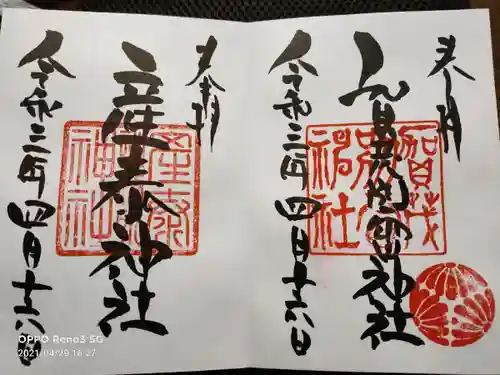 奉拝
賀茂別雷神社
令和三年四月十六日
奉拝
産泰神社
令和三年四月十六日
産泰
神社
OPPO Reno3 5G
2021/04/29 16:27